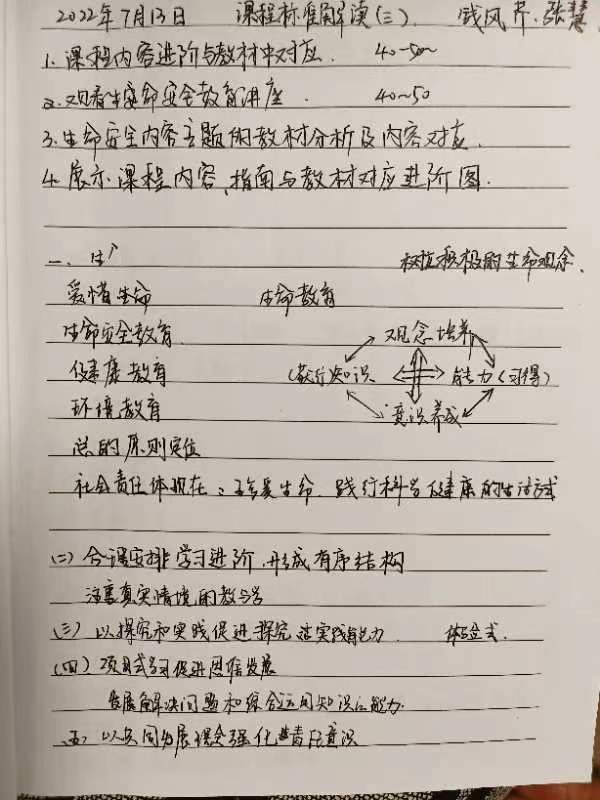 2022年7月13日 课程标准解读(三) 钱风芹、张慧
1. 课程内容进阶与教材中对应. 40~50
2. 观看生命安全教育讲座. 40~50
3. 生命安全内容主题的教材分析及内容对应.
4. 展示课程内容、指南与教材对应进阶图.
一、生 树立积极的生命观念.
爱惜生命 生命教育
生命安全教育 观念培养
健康教育 知识 能力(习得)
环境教育 意识养成
总的原则定位
社会责任体现在: 生命. 践行科学健康的生活方式
(二) 合理安排学习进阶.形成有序结构
注意真实情境的教与学
(三) 以探究和实践促进探究 实践能力 体验式.
(四) 项目式学习促进思维发展
发展解决问题和综合运用知识 能力.
五、 以 强化 责任意识